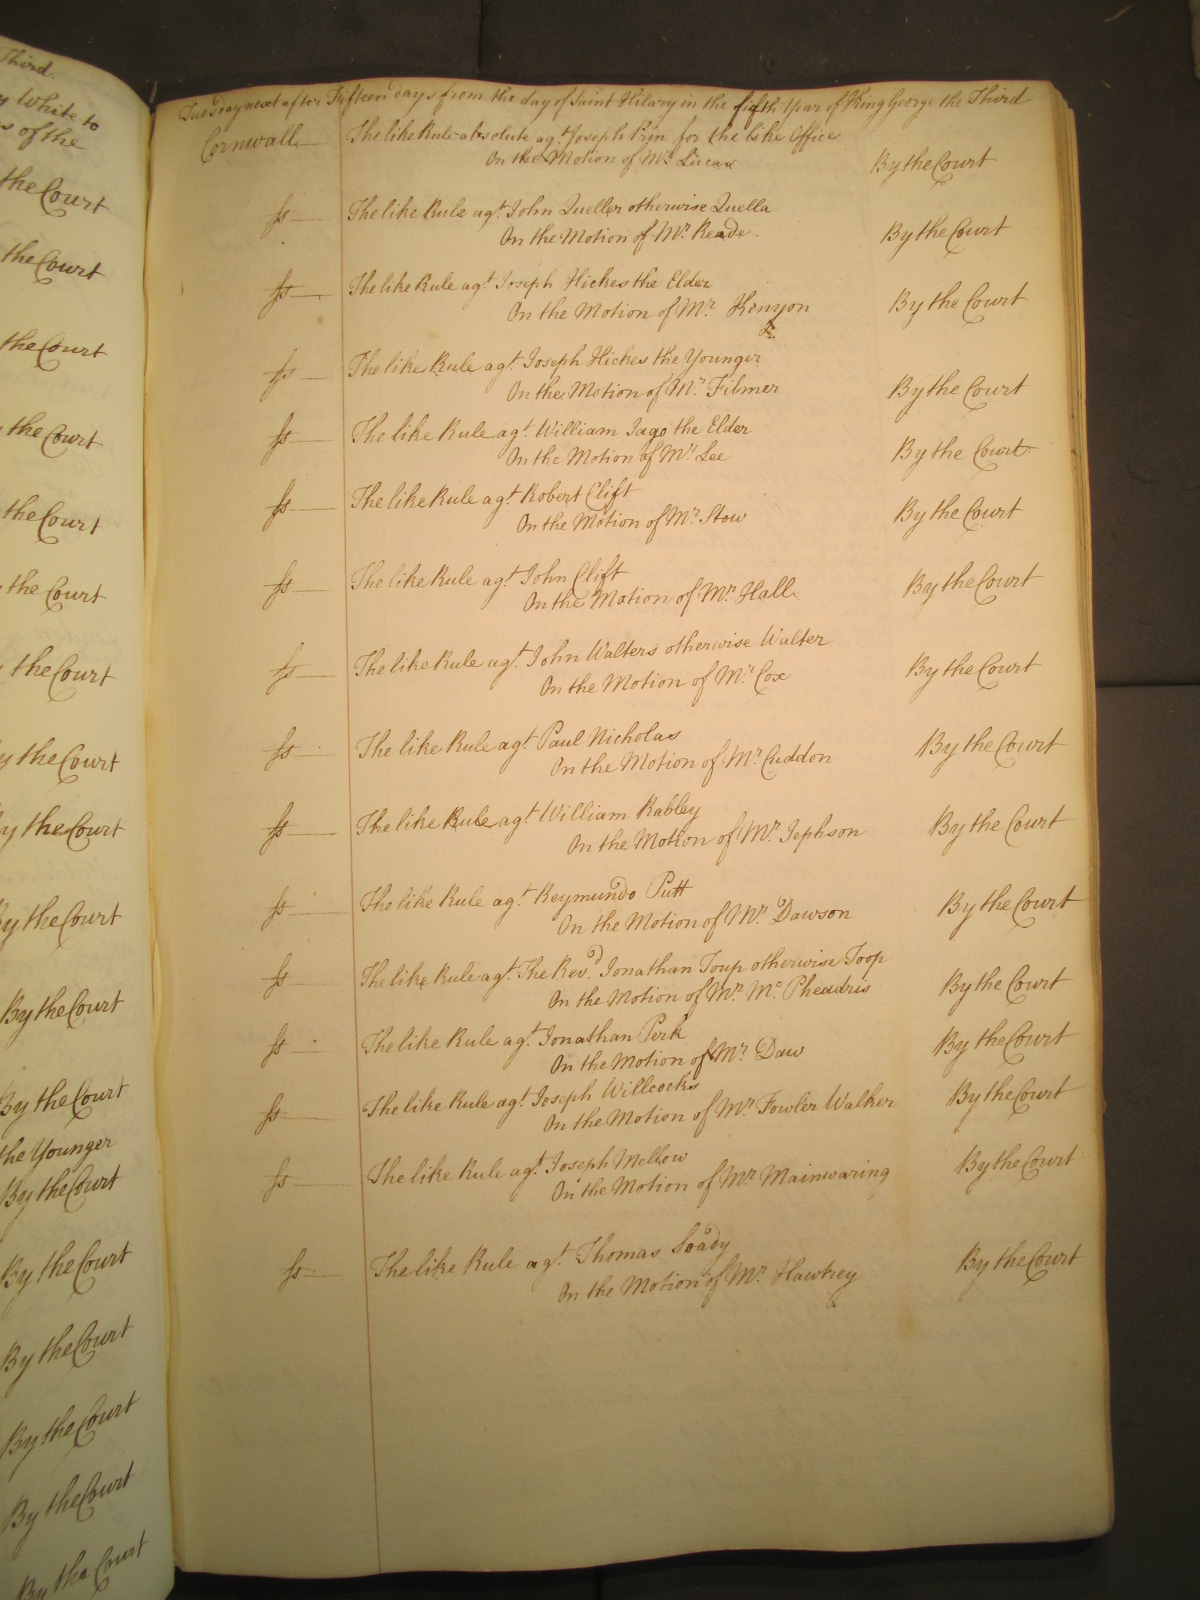 Third.
White to
s of the
the Court
the Court
the Court
the Court
the Court
the Court
the Court
y the Court
y the Court
y the Court
By the Court
By the Court
the Younger
By the Court
By the Court
By the Court
By the Court
By the Court
By the Court
Tuesday next after Fifteen days from the day of Saint Hilary in the fifth Year of King George the Third
Cornwall The like Rule absolute agt. Joseph Prin for the like Office
On the Motion of Mr. Lucas By the Court
ss The like Rule agt. John Queller otherwise Quella
On the Motion of Mr. Reade. By the Court
ss The like Rule agt. Joseph Hickes the Elder
On the Motion of Mr. Kenyon By the Court
ss The like Rule agt. Joseph Hickes the Younger
On the Motion of Mr. Filmer By the Court
ss The like Rule agt. William Jago the Elder
On the Motion of Mr. Lee By the Court
ss The like Rule agt. Robert Clift
On the Motion of Mr. Stow By the Court
ss The like Rule agt. John Clift
On the Motion of Mr. Hall By the Court
ss The like Rule agt. John Walters otherwise Walter
On the Motion of Mr. Cox By the Court
ss The like Rule agt. Paul Nicholas
On the Motion of Mr. Cuddon By the Court
ss The like Rule agt. William Rabley
On the Motion of Mr. Jephson By the Court
ss The like Rule agt. Reymundo Putt
On the Motion of Mr. Dawson By the Court
ss The like Rule agt. The Revd. Jonathan Toup otherwise Toop
On the Motion of Mr. Mc. Pheadris By the Court
ss The like Rule agt. Jonathan Perk
On the Motion of Mr. Daw By the Court
ss The like Rule agt. Joseph Willcocks
On the Motion of Mr. Fowler Walker By the Court
ss The like Rule agt. Joseph Mellow
On the Motion of Mr. Mainwaring By the Court
ss The like Rule agt. Thomas Soady
On the Motion of Mr. Hawkey By the Court